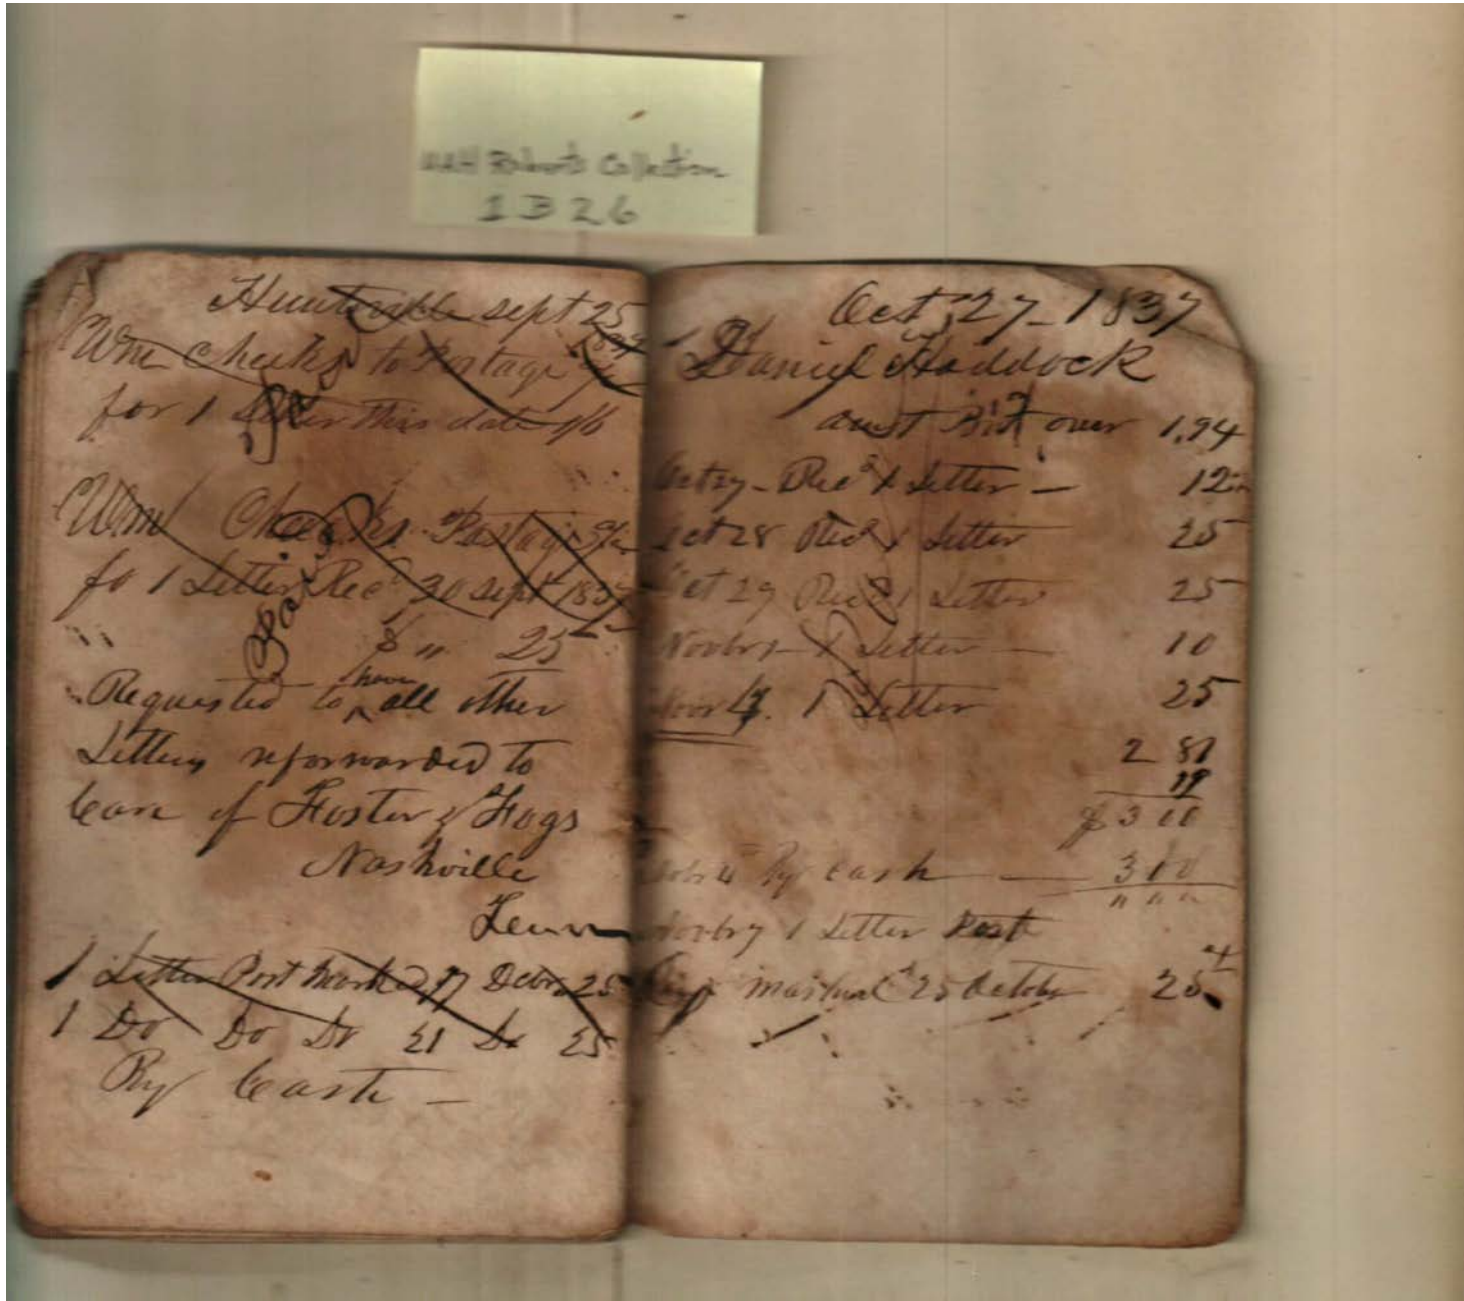 Roberts Collection
1 B 26
Huntsville sept 25
Wm Cheeks to Postage
for 1 Letter this date
Paid
Wm Cheeks Postage
fo 1 Letter Recd 30 sept 1837
Paid
" $ " 25
Requested to have all other
Letters reforwarded to
Care of Foster & Fogs
Nashville
Tenn
1 Letter Post Marked 17 Debr 25
1 Do Do Do 21 Do 25
By Cash -
Oct 27 - 1837
Daniel Haddock
amt over 1.94
Oct 27 - Recd 1 Letter - 12
Oct 28 Recd 1 Letter 25
Oct 29 Recd 1 Letter 25
1 Letter - 10
1 Letter 25
2 81
19
$ 3 00
By Cash 3 00
" " "
1 Letter Post
25 October 25